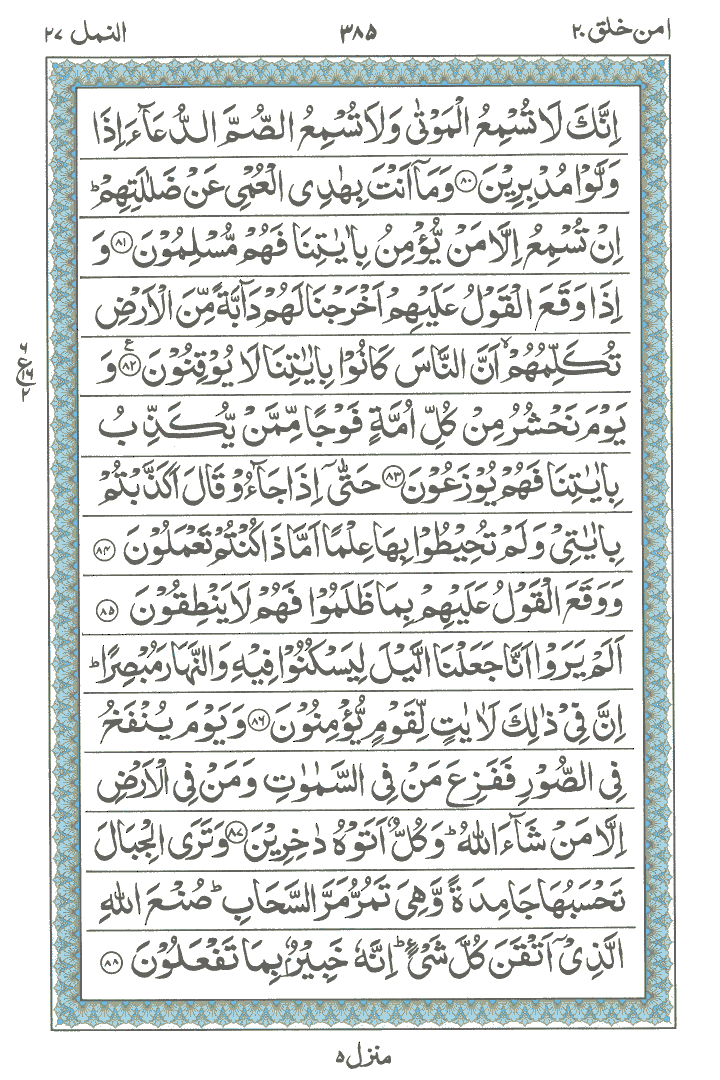 امن خلق ٢٠ ٣٨٥ النمل ٢٧
اِنَّكَ لَا تُسْمِعُ الْمَوْتٰى وَلَا تُسْمِعُ الصُّمَّ الدُّعَآءَ اِذَا
وَلَّوْا مُدْبِرِيْنَ ۝٨٠ وَمَاۤ اَنْتَ بِهٰدِى الْعُمْىِ عَنْ ضَلٰلَتِهِمْ ؕ
اِنْ تُسْمِعُ اِلَّا مَنْ يُّؤْمِنُ بِاٰيٰتِنَا فَهُمْ مُّسْلِمُوْنَ ۝٨١ وَ
اِذَا وَقَعَ الْقَوْلُ عَلَيْهِمْ اَخْرَجْنَا لَهُمْ دَآبَّةً مِّنَ الْاَرْضِ
تُكَلِّمُهُمْ ۙ اَنَّ النَّاسَ كَانُوْا بِاٰيٰتِنَا لَا يُوْقِنُوْنَ ۝٨٢ ع وَ
٦
ع
١٦
٢
يَوْمَ نَحْشُرُ مِنْ كُلِّ اُمَّةٍ فَوْجًا مِّمَّنْ يُّكَذِّبُ
بِاٰيٰتِنَا فَهُمْ يُوْزَعُوْنَ ۝٨٣ حَتّٰۤى اِذَا جَآءُوْ قَالَ اَكَذَّبْتُمْ
بِاٰيٰتِىْ وَلَمْ تُحِيْطُوْا بِهَا عِلْمًا اَمَّا ذَا كُنْتُمْ تَعْمَلُوْنَ ۝٨٤
وَوَقَعَ الْقَوْلُ عَلَيْهِمْ بِمَا ظَلَمُوْا فَهُمْ لَا يَنْطِقُوْنَ ۝٨٥
اَلَمْ يَرَوْا اَنَّا جَعَلْنَا الَّيْلَ لِيَسْكُنُوْا فِيْهِ وَالنَّهَارَ مُبْصِرًا ؕ
اِنَّ فِىْ ذٰلِكَ لَاٰيٰتٍ لِّقَوْمٍ يُّؤْمِنُوْنَ ۝٨٦ وَيَوْمَ يُنْفَخُ
فِى الصُّوْرِ فَفَزِعَ مَنْ فِى السَّمٰوٰتِ وَمَنْ فِى الْاَرْضِ
اِلَّا مَنْ شَآءَ اللّٰهُ ؕ وَكُلٌّ اَتَوْهُ دٰخِرِيْنَ ۝٨٧ وَتَرَى الْجِبَالَ
تَحْسَبُهَا جَامِدَةً وَّهِىَ تَمُرُّ مَرَّ السَّحَابِ ؕ صُنْعَ اللّٰهِ
الَّذِىْۤ اَتْقَنَ كُلَّ شَىْءٍ ؕ اِنَّهٗ خَبِيْرٌۢ بِمَا تَفْعَلُوْنَ ۝٨٨
منزل ٥